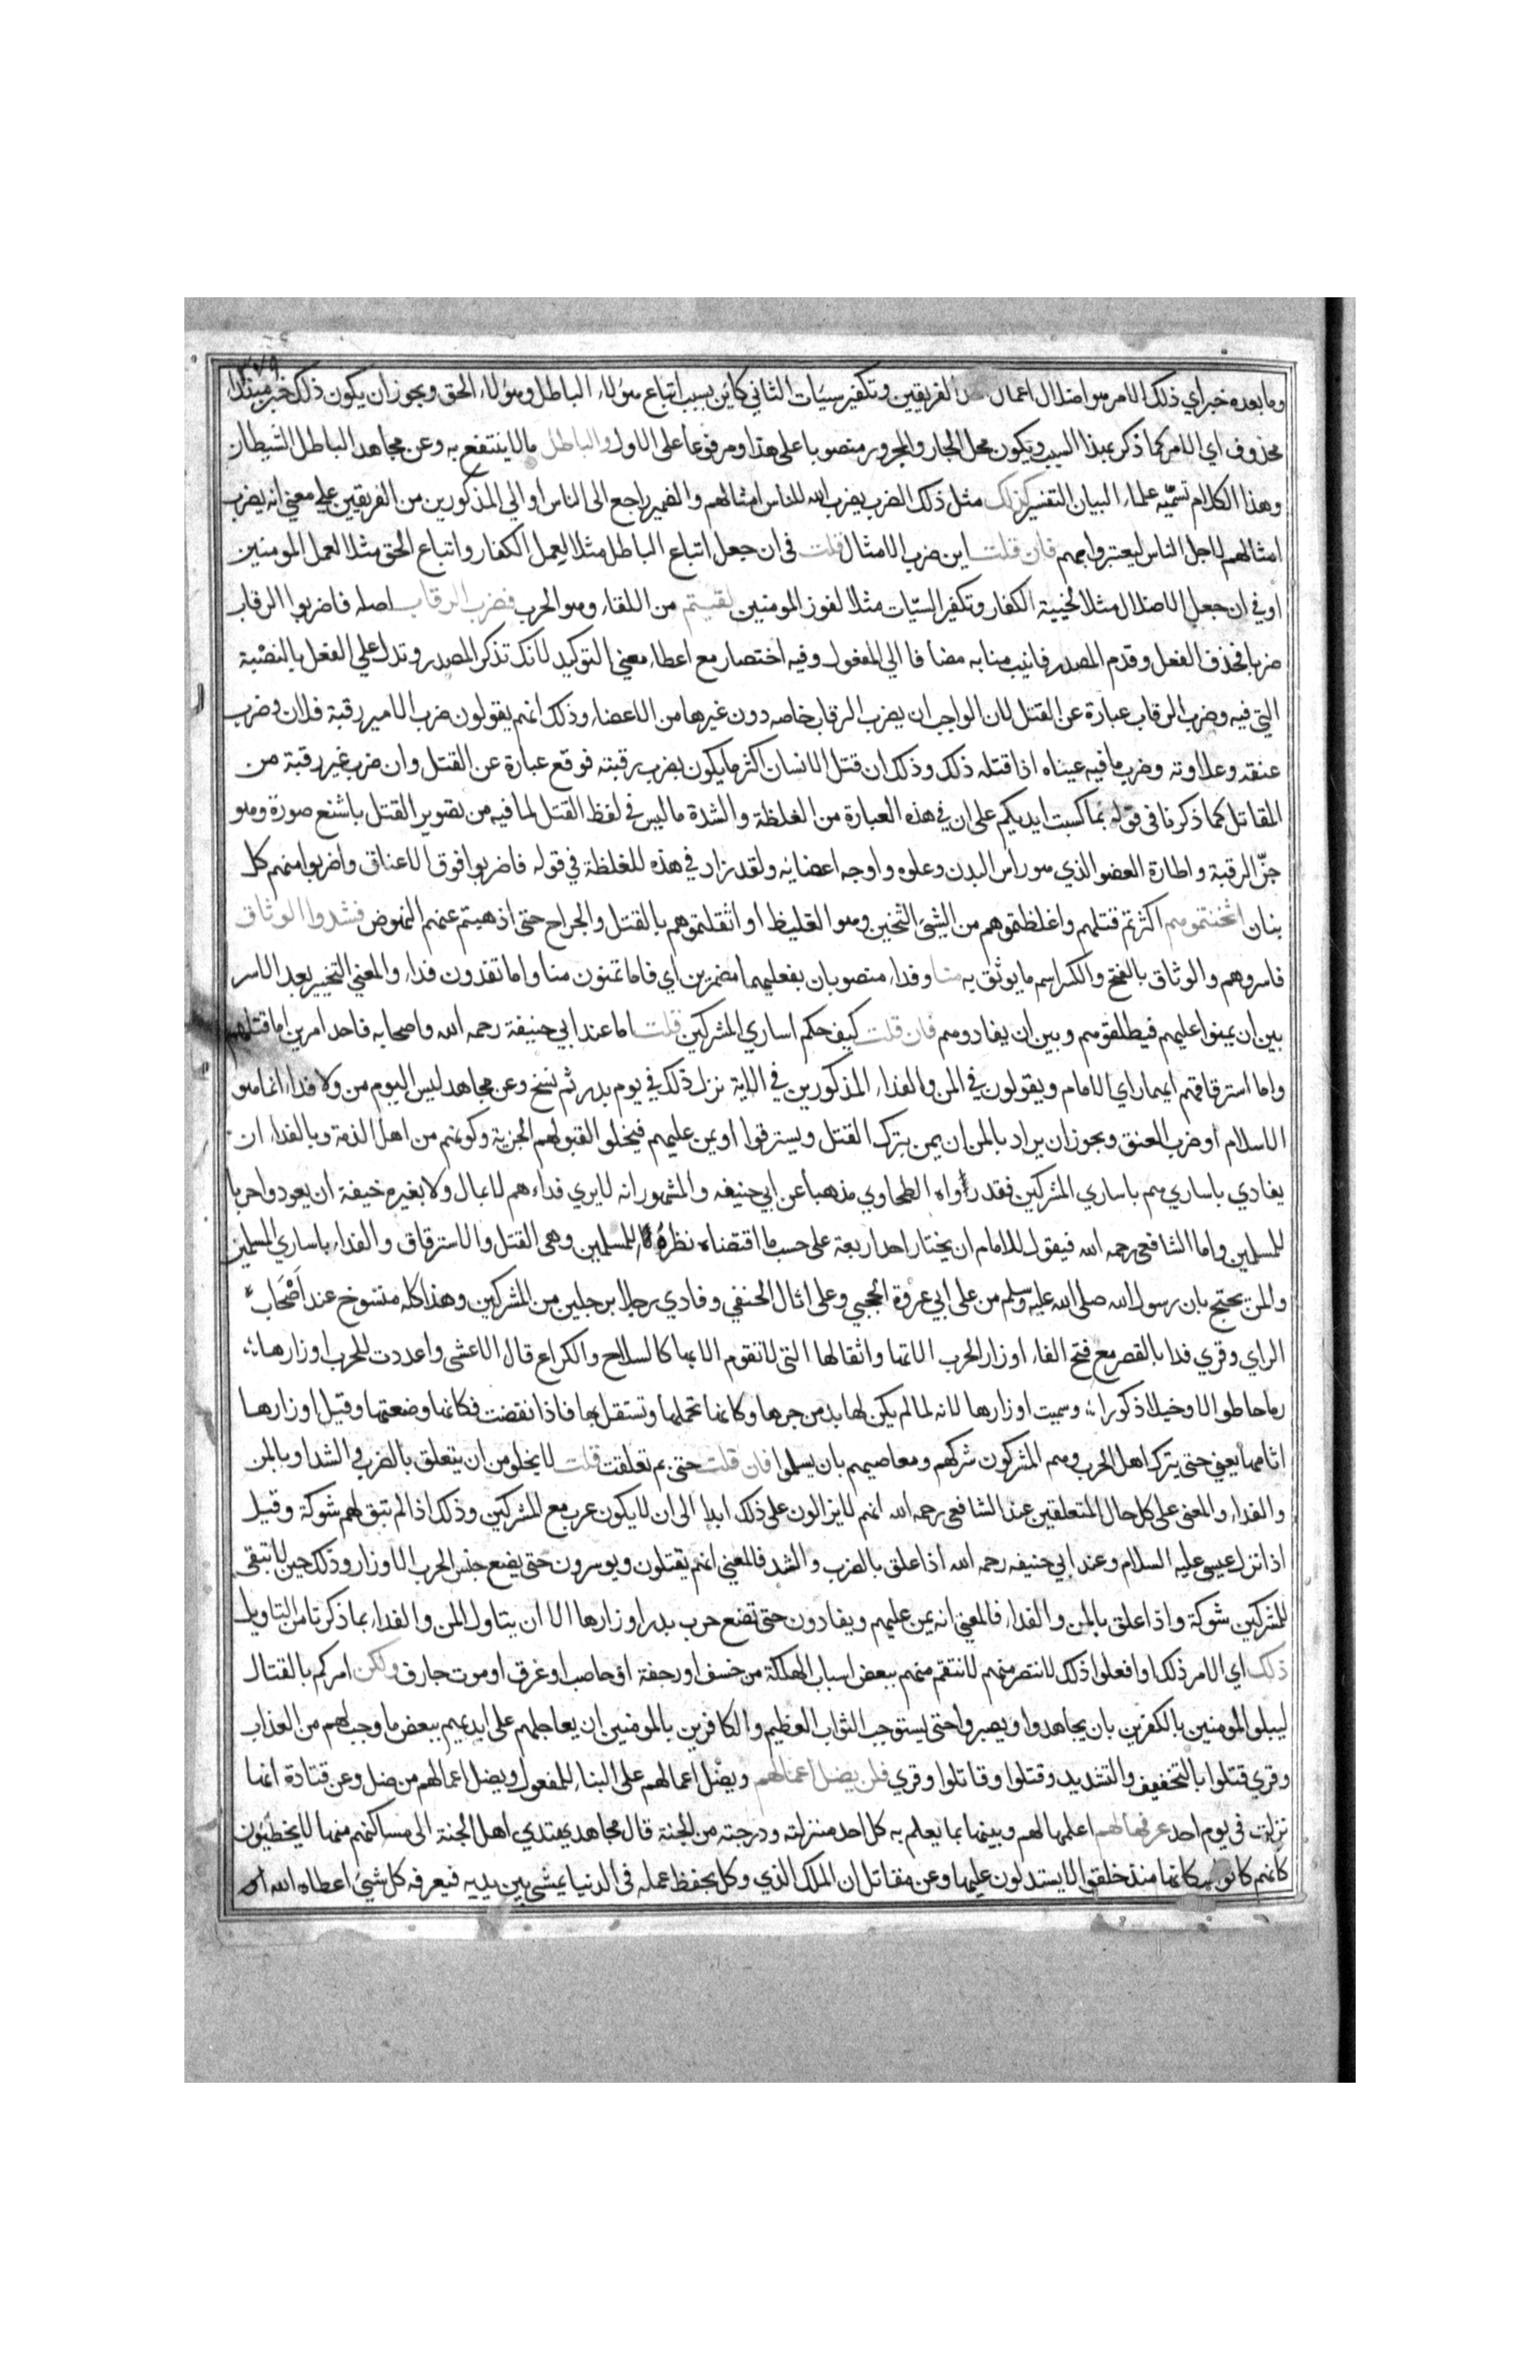 ٣٧٩
وما بعده خبر اي ذلك الامر هو اضلال اعمال الفريقين وتكفير سيئات الثاني كاين بسبب اتباع هؤلاء الباطل وهؤلاء الحق ويجوز ان يكون ذلك خبر مبتداء
محذوف اي الامر كما ذكر بهذا السبب ويكون محل الجار والمجرور منصوبا على هذا ومرفوعا على الاول والباطل مالا ينتفع به وعن مجاهد الباطل الشيطان
وهذا الكلام تسمّيه علماء البيان التفسير كذلك مثل ذلك الضرب يضرب الله للناس امثالهم والضمير راجع الى الناس او الي المذكورين من الفريقين على معني انه يضرب
امثالهم لاجل الناس ليعتبروا بهم فان قلت اين ضرب الامثال قلت في ان جعل اتباع الباطل مثلا لعمل الكفار واتباع الحق مثلا لعمل المومنين
او في ان جعل الاضلال مثلا لخيبة الكفار وتكفير السيّات مثلا لفوز المومنين لقيتم من اللقاء وهو الحرب فضرب الرقاب اصله فاضربوا الرقاب
ضربا فحذف الفعل وقدم المصدر فانيب منابه مضافا الي المفعول وفيه اختصار مع اعطاء معني التوكيد لانك تذكر المصدر وتدل علي الفعل بالنصبة
التي فيه وضرب الرقاب عبارة عن القتل لان الواجب ان يضرب الرقاب خاصه دون غيرها من الاعضاء وذلك انهم يقولون ضرب الامير رقبة فلان وضرب
عنقه وعلاوته وضرب ما فيه عيناه اذا قتله ذلك وذلك ان قتل الانسان اكثر ما يكون بضرب رقبته فوقع عبارة عن القتل وان ضرب غير رقبة من
المقاتل كما ذكرنا في قوله بما كسبت ايديكم على ان في هذه العبارة من الغلظة والشدة ما ليس في لفظ القتل لما فيه من تصوير القتل باشنع صورة وهو
جزّ الرقبة واطارة العضو الذي هو راس البدن وعلوه واوجه اعضائه ولقد زاد في هذه للغلظة في قوله فاضربوا فوق الاعناق واضربوا منهم كل
بنان اثخنتموهم اكثرتم قتلهم واغلظتموهم من الشيئ الثخين وهو الغليظ او اثقلتموهم بالقتل والجراح حتى اذهبتم عنهم النهوض فشدوا الوثاق
فاسروهم والوثاق بالفتح والكسر اسم ما يوثق به منا وفداء منصوبان بفعليهما مضمرين اي فاما تمنون منا واما تفدون فداء والمعني التخيير بعد الاسر
بين ان يمنوا عليهم فيطلقوهم وبين ان يفادوهم فان قلت كيف حكم اساري المشركين قلت اما عند ابي حنيفة رحمه الله واصحابه فاحد امرين اما قتلهم
واما استرقاقهم ايهما راي الامام ويقولون في المن والفداء المذكورين في الاية نزل ذلك في يوم بدر ثم نسخ وعن مجاهد ليس اليوم من ولا فداء انما هو
الاسلام او ضرب العنق ويجوز ان يراد بالمن ان يمن بترك القتل ويسترقوا او يمن عليهم فيخلوا لقبولهم الجزية وكونهم من اهل الذمة وبالفداء ان
يفادي باساري هم باساري المشركين فقد رواه الطحاوي مذهبا عن ابي حنيفه والمشهور انه لا يري فداءهم لا بمال ولا بغيره خيفة ان يعودوا حربا
للمسلمين واما الشافعي رحمه الله فيقول للامام ان يختار احد اربعة على حسب ما اقتضاه نظره للمسلمين وهي القتل والاسترقاق والفداء باساري المسلمين
والمن يحتج بان رسول الله صلى الله عليه وسلم من على ابي عروة الحجبي وعلى اثال الحنفي وفادي رجلا برجلين من المشركين وهذا كله منسوخ عند اصحاب
الراي وقري فدا بالقصر مع فتح الفاء اوزار الحرب الاتها واثقالها التي لا تقوم الا بها كالسلاح والكراع قال الاعشي واعددت للحرب اوزارها
رماحا طوالا وخيلا ذكورا وسميت اوزارها لانه لما لم يكن لها بد من جرها وكانها تحملها وتستقل بها فاذا نقضت فكانها وضعتها وقيل اوزارها
اثامها يعني حتى يترك اهل الحرب وهم المشركون شركهم ومعاصيهم بان يسلموا فان قلت حتى بم تعلقت قلت لا يخلو من ان يتعلق بالضرب والشد او بالمن
والفداء والمعنى على كل حال المتعلقين عند الشافعي رحمه الله انهم لا يزالون على ذلك ابدا الى ان لا يكون حرب مع المشركين وذلك اذا لم تبق لهم شوكة وقيل
اذا نزل عيسى عليه السلام وعند ابي حنيفه رحمه الله اذا علق بالضرب والشد فالمعني انهم يقتلون ويوسرون حتى يضع جنس الحرب الاوزار وذلك حين لا تبقى
للمشركين شوكة واذا علق بالمن والفداء فالمعني انه يمن عليهم ويفادون حتى تضع حرب بدر اوزارها الا ان يتاول المن والفداء بما ذكرنا من التاويل
ذلك اي الامر ذلك او افعلوا ذلك لانتصر منهم لانتقم منهم ببعض اسباب الهلكة من خسف او رجفة او حاصب او غرق او موت جارف ولكن امركم بالقتال
ليبلوا المومنين بالكفرين بان يجاهدوا ويصبروا حتى يستوجب الثواب العظيم والكافرين بالمومنين ان يعاجلهم على ايديهم ببعض ما وجب لهم من العذاب
وقري قتلوا بالتخفيف والتشديد وقتلوا وقاتلوا وقري فلن يضل اعمالهم ويضل اعمالهم على البناء للمفعول ويضل اعمالهم من ضل وعن قتادة انها
نزلت في يوم احد عرفها لهم اعلمها لهم وبينها بما يعلم به كل احد منزلته ودرجته من الجنة قال مجاهد يهتدي اهل الجنة الى مساكنهم منها لا يخطئون
كانهم كانوا سكانها منذ خلقوا لا يستدلون عليها وعن مقاتل ان الملك الذي وكل بحفظ عمله في الدنيا يمشي بين يديه فيعرفه كل شيئ اعطاه الله